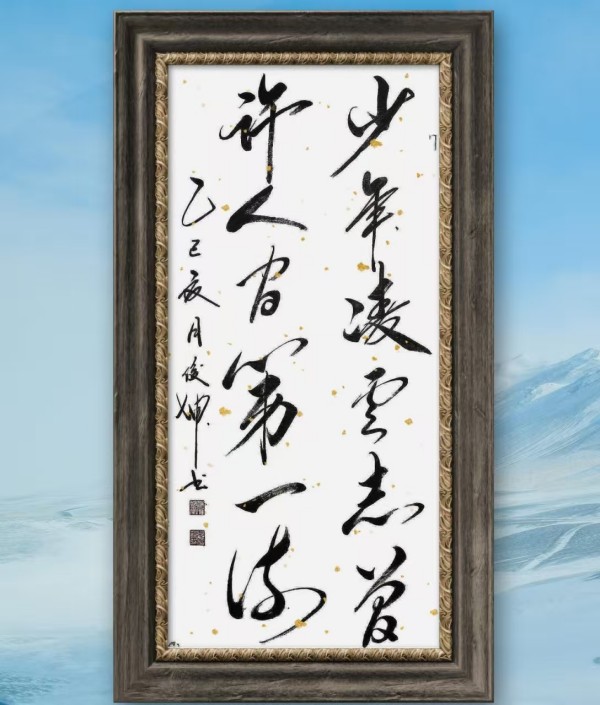 少年凌云志曾
许人间第一流
乙巳夏月俊坤书